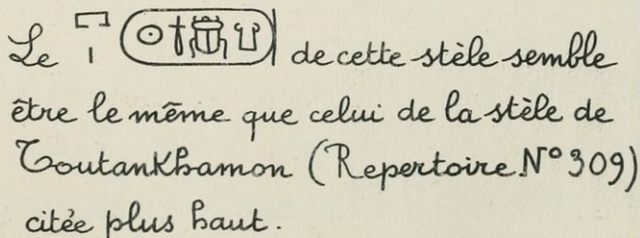 Le 𓉐𓏤 𓍹𓇳𓉼𓆣𓂓𓍺 de cette stèle semble
être le même que celui de la stèle de
Toutankhamon (Repertoire N° 309)
citée plus haut.